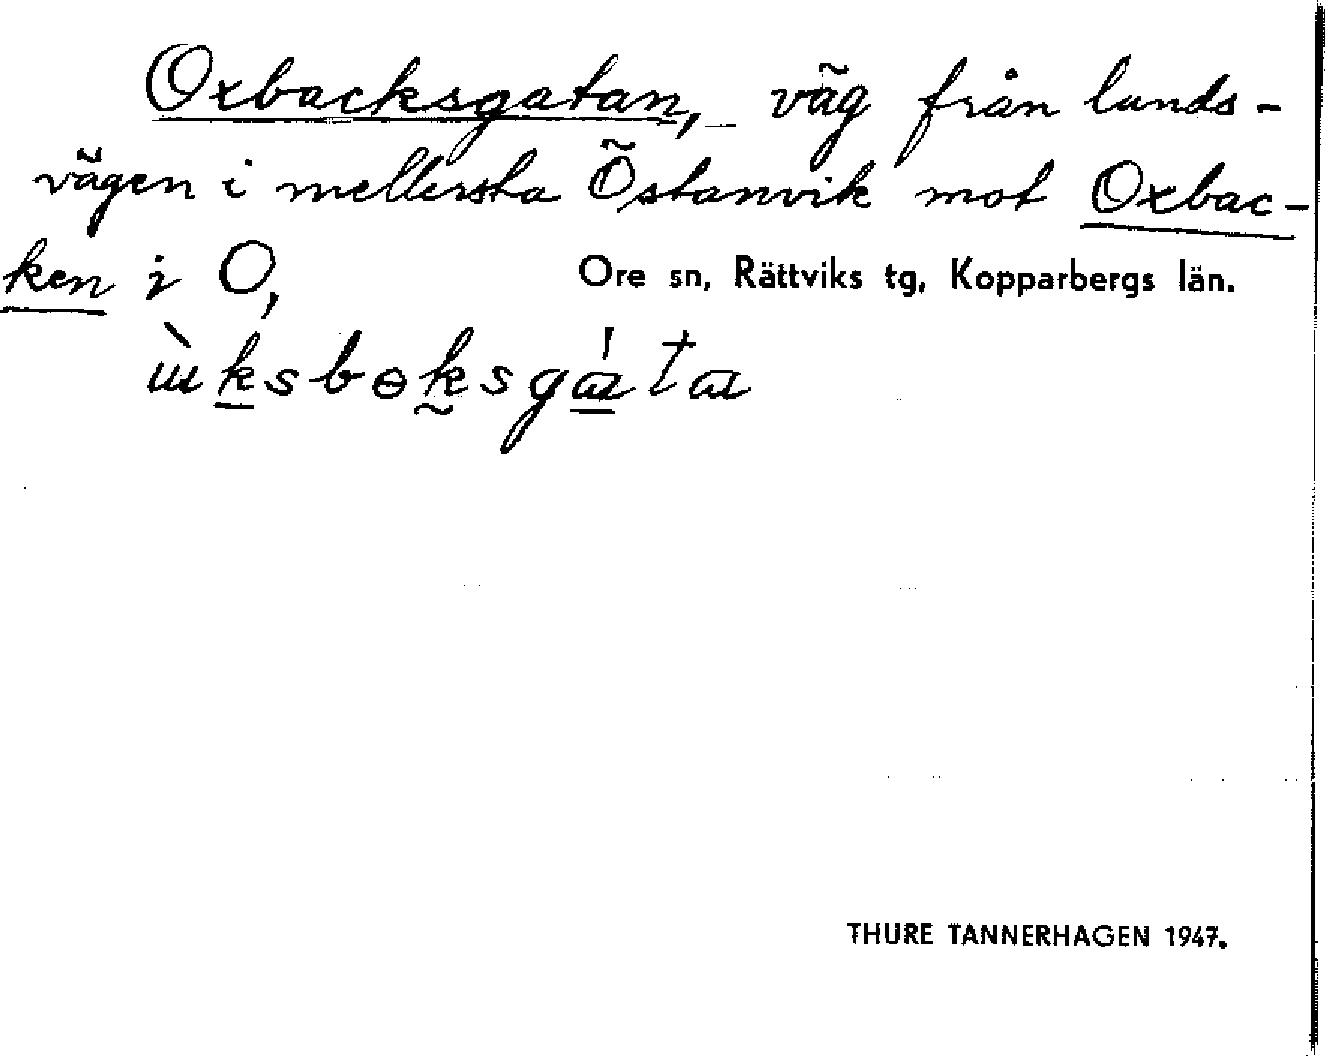 Oxbacksgatan, väg från lands-
vägen i mellersta Östanvik mot Oxbac-
ken i O,
Ore sn, Rättviks tg, Kopparbergs län.
THURE TANNERHAGEN 1947.